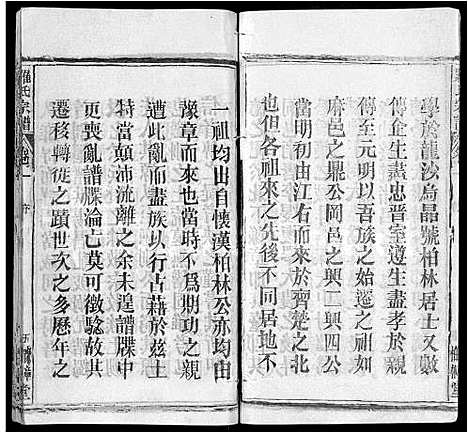 學於龍沙烏晶號柏林居士又數
傳企生盡忠晉室遵生盡孝於親
至於元明以吾族之始遷之祖如
麻邑之鼎公岡邑之興一興四公
當明初由江右而北於齊楚之北
也但各祖來之先後不同居地不
一祖均出自懷漢柏林公亦均由
豫章而來也當時不爲期功之親
遭此亂而盡族以行占藉於兹土
特當顛沛流離之余未遑譜牒中
更喪亂譜牒淪亡莫可徵驗故其
遷移轉徙之蹟世次之多歷年之
羅氏宗譜 卷一 序